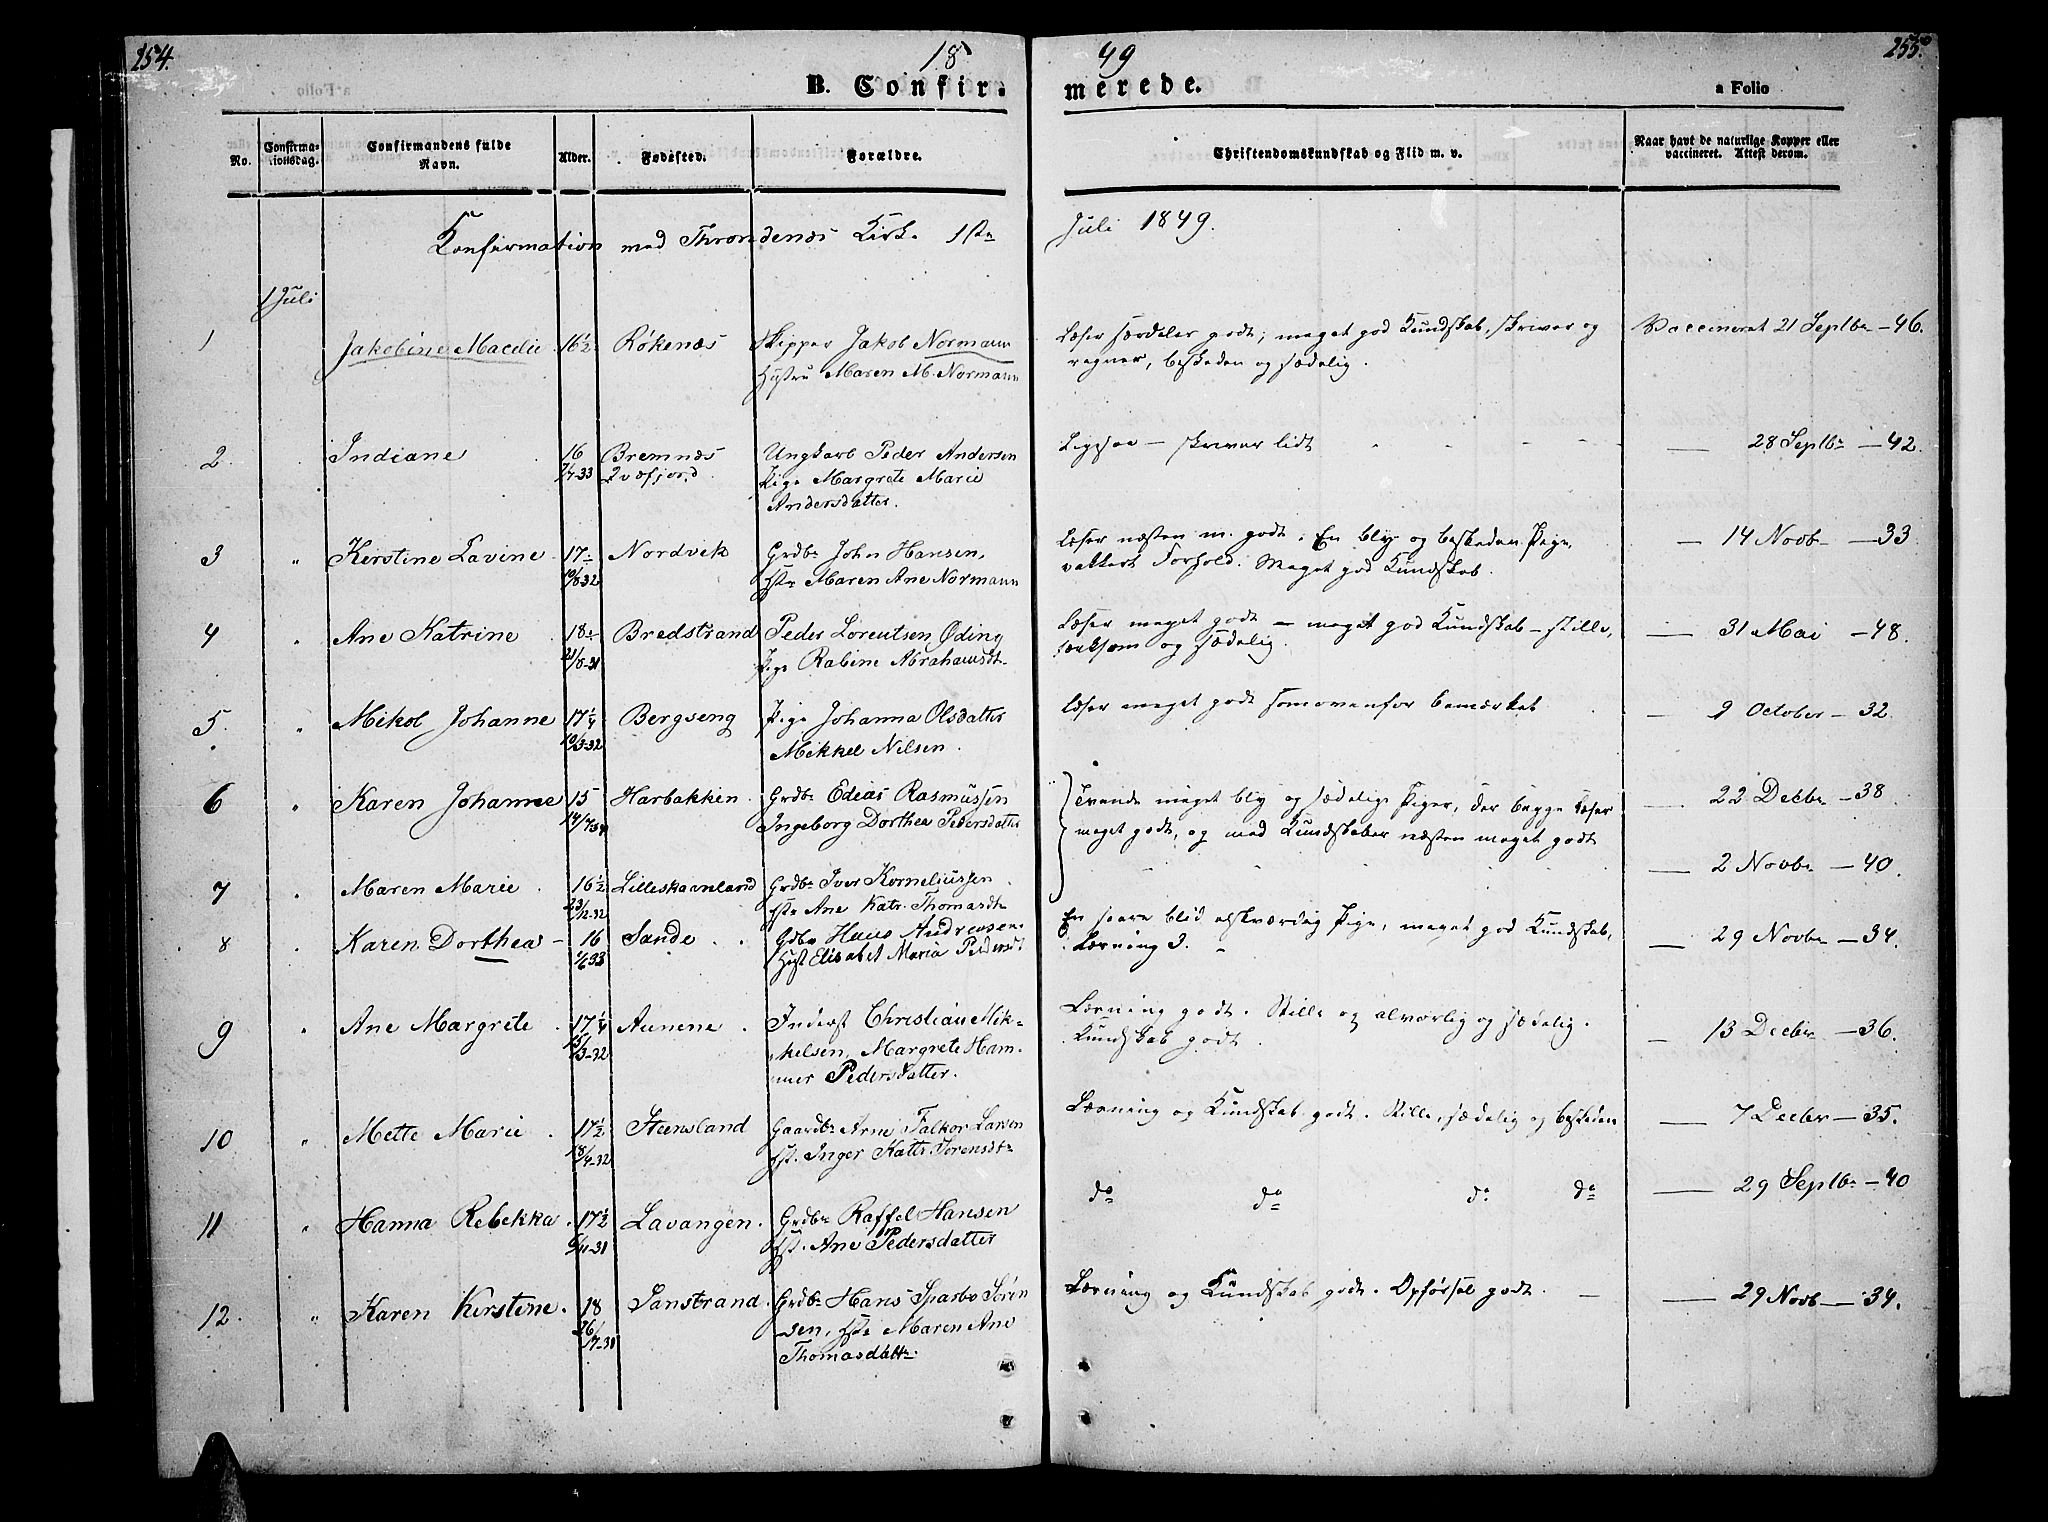 254.
18
49
255.
B. Confir-
merede.
a Folio
No.
Confirma-
tionsdag.
Confirmandens fulde
Navn.
Alder.
Fødested.
Forældre.
Christendomskundskab og Flid m. v.
Naar havt de naturlige Kopper eller
vaccineret. Attest derom.
Confirmation ved Throndenæs Kirke 1ste
Juli 1849.
1 Juli
1
Jakobine
16½
Røkenæs
Skipper Jakob Normann
Hustru Maren M. Normann
Læser særdeles godt; meget god Kundskab, skriver og
regner, beskeden og sædelig.
Vaccineret 21 Septbr -46.
2.
Indiane
16
Bremnæs
Qvæfjord
Ungkarl Peder Andersen
Pige Margrete Marie
Andersdatter.
Ligesaa - skriver lidt
— 28 Septbr -42.
3
"
Kerstine Lavine
17
Nordvik
Grdbr John Hansen,
Hstr Maren Ane Normann
Læser næsten m. godt; En bly og beskeden Pige,
vakkert Forhold. Meget god Kundskab.
— 14 Novbr -33
4
"
Ane Katrine
18
Bredstrand
Peder Lorentsen Øding
Pige Rabine Abrahamsdt.
Læser meget godt - meget god Kundskab - stille,
og sædelig.
— 31 Mai -48.
5.
"
Mikol Johanne
17¼
10/3-32
Bergseng
Pige Johanna Olsdatter
Mikkel Nilsen.
Læser meget godt somovenfor bemærket
— 9 October -32.
6
"
Karen Johanne
15
14/7 34
Harbakken
Grdbr Edias Rasmussen
Ingeborg Dorthea Pedersdatter
Tvende meget bly og sædelige Piger, der begge læser
meget godt, og med Kundskaber næsten meget godt
— 22 Decbr -38
7
"
Maren Marie
16½
23/12-32
Lilleskaanland
Grdbr Iver Korneliussen
Hstr Ane Katr. Thomasdtr
— 2 Novbr -40.
8
Karen Dorthea
16
Sande
Gdbr Hans Andreasen
Hust Elisabet Maria Pedersdt
En saare blid elskværdig Pige, meget god Kundskab,
Læsning 3.
— 29 Novbr -34.
9
"
Ane Margrete
17¼
15/3-32
Aunene
Inderst Christian Mik-
kelsen, Margrete Ham-
mer Pedersdatter.
Læsning godt. Stille og alvorlig og sædelig.
Kundskab godt.
— 13 Decbr -36.
10
"
Mette Marie
17½
18/4-32
Steensland
Gaardbr Arne Falkor Larsen
Hst. Inger Katr. Sørensdtr
Læsning og Kundskab godt. Stille, sædelig og beskeden
— 7 Decbr -35.
11
"
Hanna Rebekka
17½
6/11-31
Lavangen
Grdbr Raffel Hansen
Hst. Ane Pedersdatter
do do do do
— 29 Septbr -40
12.
"
Karen Kirstine
18
Sanstrand
Grdbr Hans Sparbo Søren
sen, Hstr Maren Ane
Thomasdattr.
Læsning og Kundskab godt. Opførsel godt.
— 29 Novb -34.